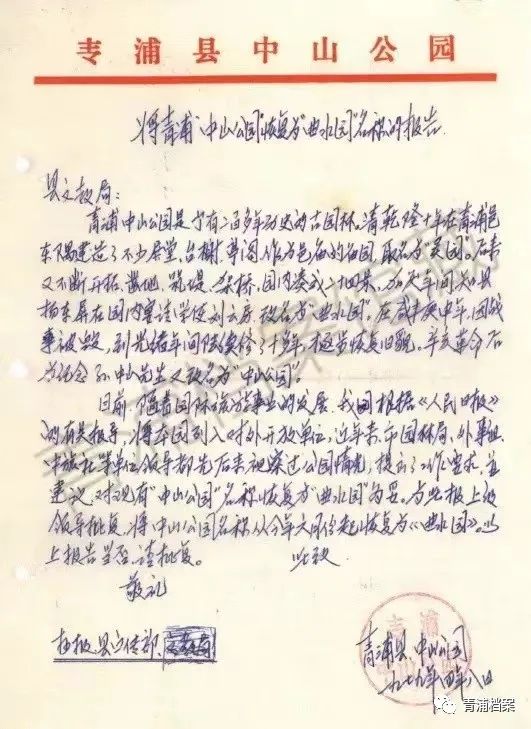 青浦县中山公园
将青浦“中山公园”恢复为“曲水园”名称的报告
县文教局：
青浦中山公园是个有二百多年历史的古园林。清乾隆十年在青浦邑
东隅建造了不少居堂、台榭、亭阁，作为邑庙的
又不断开拓，凿池，筑堤，架桥，园内凑成二十四景，
杨东屏在园内宴请学使刘云房，改名为“曲水园”。在咸丰庚申年，因战
事被毁，到光绪年间陆续修了十多年，
恢复旧貌。辛亥革命后
为纪念孙中山先生又改名为“中山公园”。
目前，随着园林旅游事业的发展，我园根据《人民日报》
的有关报导，将本园列入对外开放单位，近年来，市园林局、外事组、
中旅社等单位领导都先后来视察过公园情况，提出了工作要求，并
建议，对现有“中山公园”名称恢复为“曲水园”为妥。为此报上级
领导批复，将“中山公园”名称从今年六月份起恢复为《曲水园》。以
上报告当否，请批复。 此致
敬礼
抄报县宣传部、
青浦县中山公园
一九七九年四月八日
青浦档案